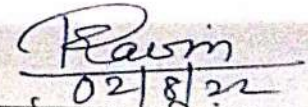 Ravin
02/8/22